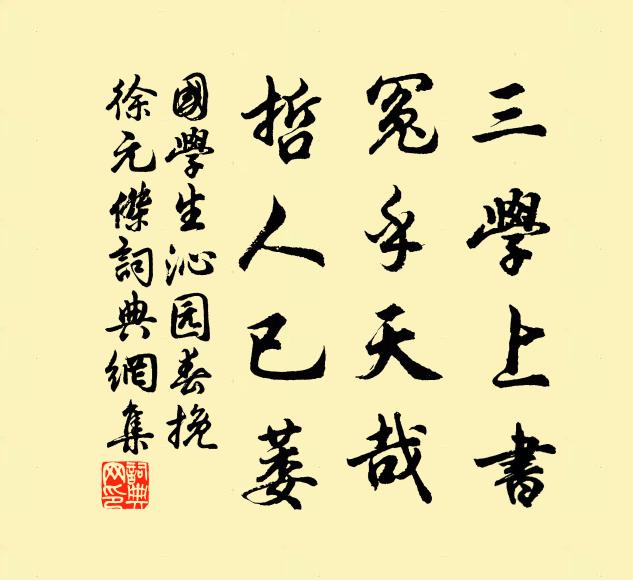 三學上書
冤乎天哉
哲人已萎
國學生沁园春挽
徐元傑詞典網集
詞典網印